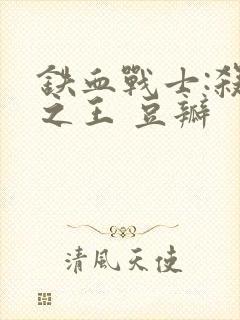 鉄血戰士:殺
之王 豆瓣
清風天使